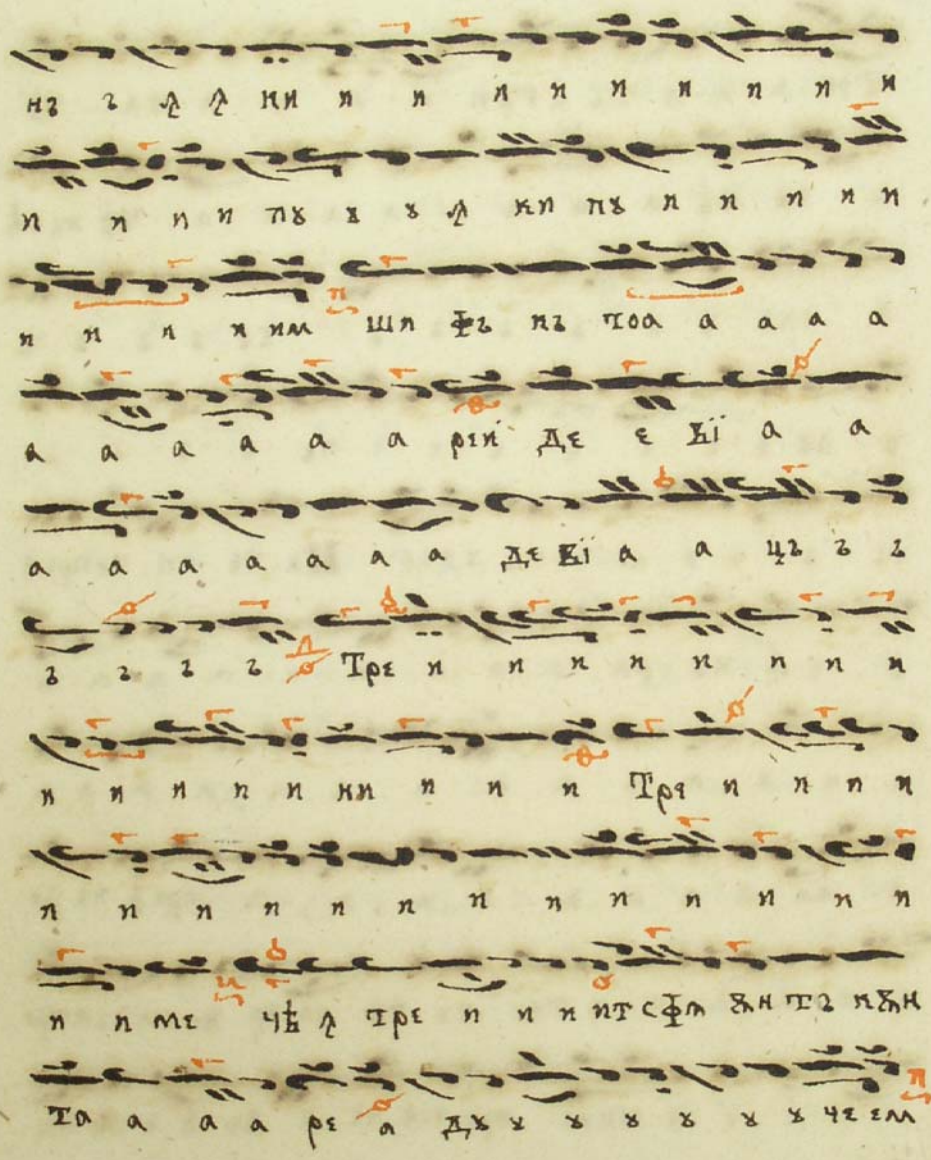 нъ ъ ꙟ ꙟ ни и и и и и и и и и
и и и и пꙋ ꙋ ꙋ ꙟ ки пꙋ и и и и и
и и и и им ши фъ къ тоа а а а а
а а а а а а рїй де е вї а а
а а а а а а а де вї а а цъ ъ ъ
ъ ъ ъ ъ Тре и и и и и и и и
и и и и и ни и и и Тре и и и и
и и и и и и и и и и и и и
и и ме чѣ ꙟ тре и и и ит сфѫ ѫн тъ кѫн
Та а а а ре а дꙋ ꙋ ꙋ ꙋ ꙋ ꙋ ꙋ че ем